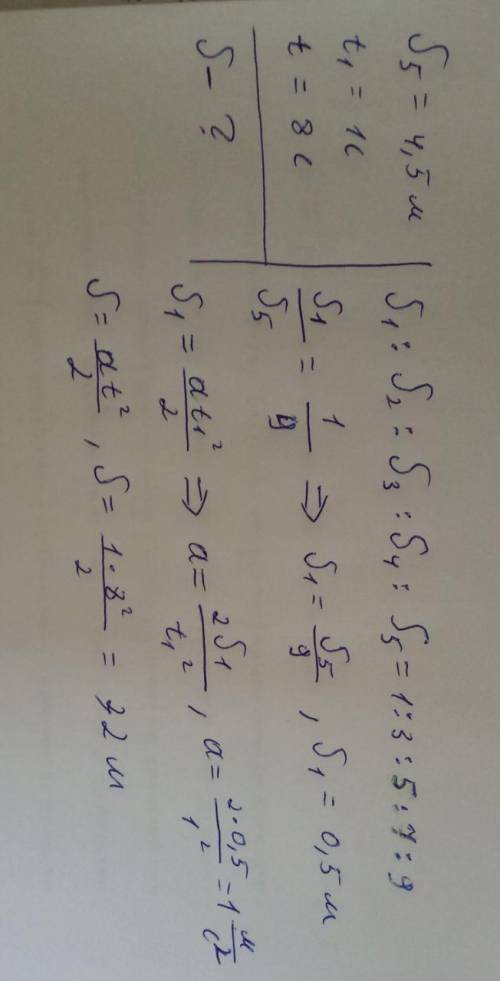 S₅ = 4,5 м
t₁ = 1с
t = 8 с
S - ?
S₁ : S₂ : S₃ : S₄ : S₅ = 1:3:5:7:9
S₁/S₅ = 1/9 ⇒ S₁ = S₅/9, S₁ = 0,5 м
S₁ = at₁²/2 ⇒ a = 2S₁/t₁², a = 2·0,5/1² = 1 м/с2
S = at²/2, S = 1·8²/2 = 32 м